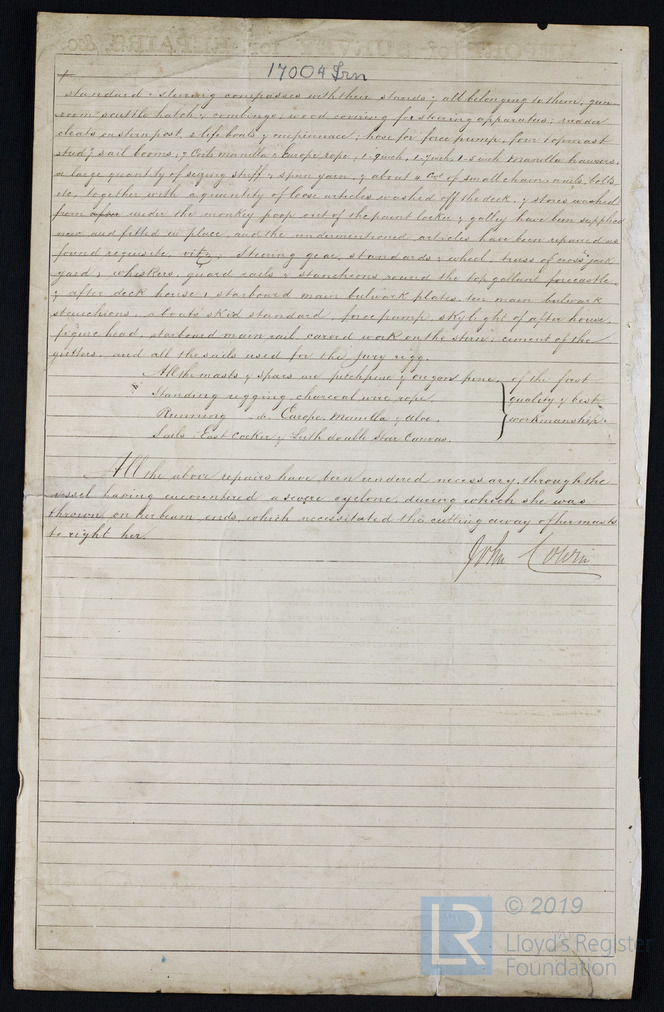 17004 Irn
standard & steering compasses with their stands, & all belonging to them, gun
room scuttle hatch & combings, wood covering for steering apparatus, rudder
cleats on sternpost, 2 lifeboats & one pinnace, hose for force pump, four topmast
stud'g sail booms, 7 Coils manilla & Europe rope, 1. 9 inch, 1. 7 inch, 1. 5 inch Manilla hawsers,
a large quantity of seizing stuff & spun yarn, & about 4 Cwt of small chain, nails, bolts
etc. together with a quantity of loose articles washed off the deck, & stores washed
from under the monkey poop out of the paint locker & galley have been supplied
new and fitted in place, and the undermentioned articles have been repaired as
found requisite, vitz, steering gear, standards & wheel, truss of cross jack
yard, whiskers, guard rails & stanchions round the top gallant forecastle
& after deck house, starboard main bulwark plates, ten main bulwark
stanchions, a boats skid standard, force pump, skylight of after house,
figure head, starboard main rail, carved work on the stern, cement of the
gutters, and all the sails used for the jury rigg.
All the masts & spars are pitchpine & oregon pine, of the first
Standing rigging charcoal wire rope quality & best
Running do Europe, Manilla & aloe. workmanship.
Sails East Cocker & Leith double Star Canvas.
All the above repairs have been rendered necessary through the
vessel having encountered a severe cyclone, during which she was
thrown on her beam ends, which necessitated the cutting away of her masts
to right her.
John Cowin
© 2019
LR
Lloyd's Register
Foundation